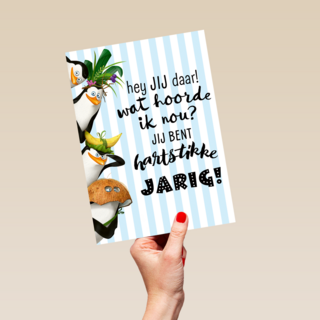 hey JIJ daar!
wat hoorde
ik nou?
JIJ BENT
hartstikke
JARIG!